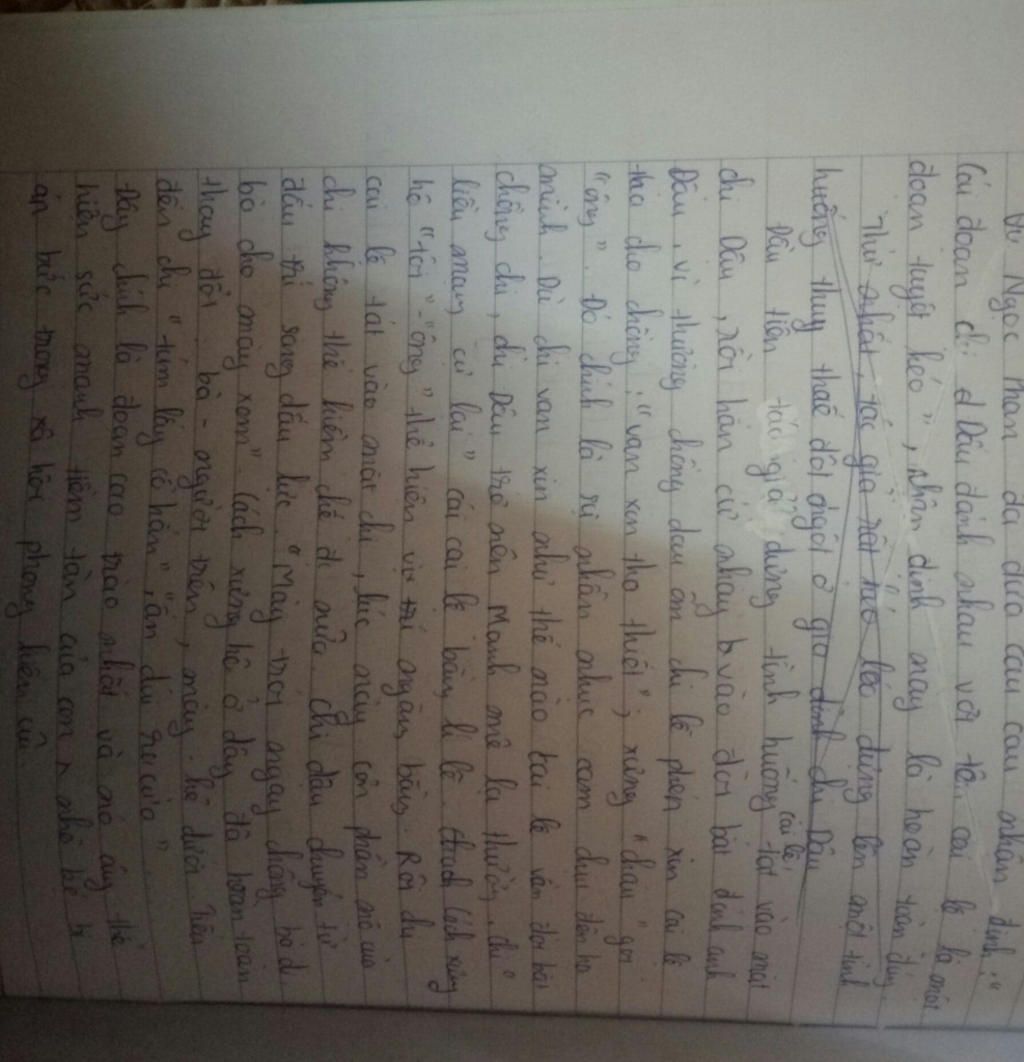 Vũ Ngọc Phan đã đưa ra câu nhận định: "
Cái đoạn chị Dậu đánh nhau với tên cai lệ là một
đoạn tuyệt khéo", nhận định này là hoàn toàn đúng.
Thứ nhất, tác giả rất khéo léo dựng lên một tình
huống thay thế đột ngột ở gia đình chị Dậu
Đầu tiên tác giả dựng tình huống cai lệ tát vào mặt
chị Dậu, rồi hắn cứ nhảy vào đòi bắt dính anh
Dậu. Vì thương chồng đau ốm chị lễ phép xin cai lệ
tha cho chồng: "van xen tha thiết"; xưng "cháu" gọi
"ông". Đó chính là sự nhẫn nhục cam chịu đến họ
mình. Dù chị van xin như thế nào cai lệ vẫn đòi bắt
chồng chị, chị Dậu trở nên mạnh mẽ lạ thường, chị "
liều mạng cự lại" cái cai lệ bằng lí lẽ. Cách xưng
hô "tôi" - "ông" thể hiện vị trí ngang bằng. Rồi dù
cai lệ tát vào mặt chị, lúc này cơn phẫn nộ của
chị không thể kiềm chế đi nữa. Chị Dậu chuyển từ
đấu trí sang đấu lực. "Mày trói ngay chồng bà đi
bà cho mày xem". Cách xưng hô ở đây đã hoàn toàn
thay đổi. bà - người trên, mày - kẻ dưới. Tiến
đến chị "túm lấy cổ hắn", "ấn dúi ra cửa"
Đây chính là đoạn cao trào nhất và nó ấy thể
hiện sức mạnh tiềm tàn của con n nhỏ bé bị
áp bức trong xã hội phong kiến cũ.